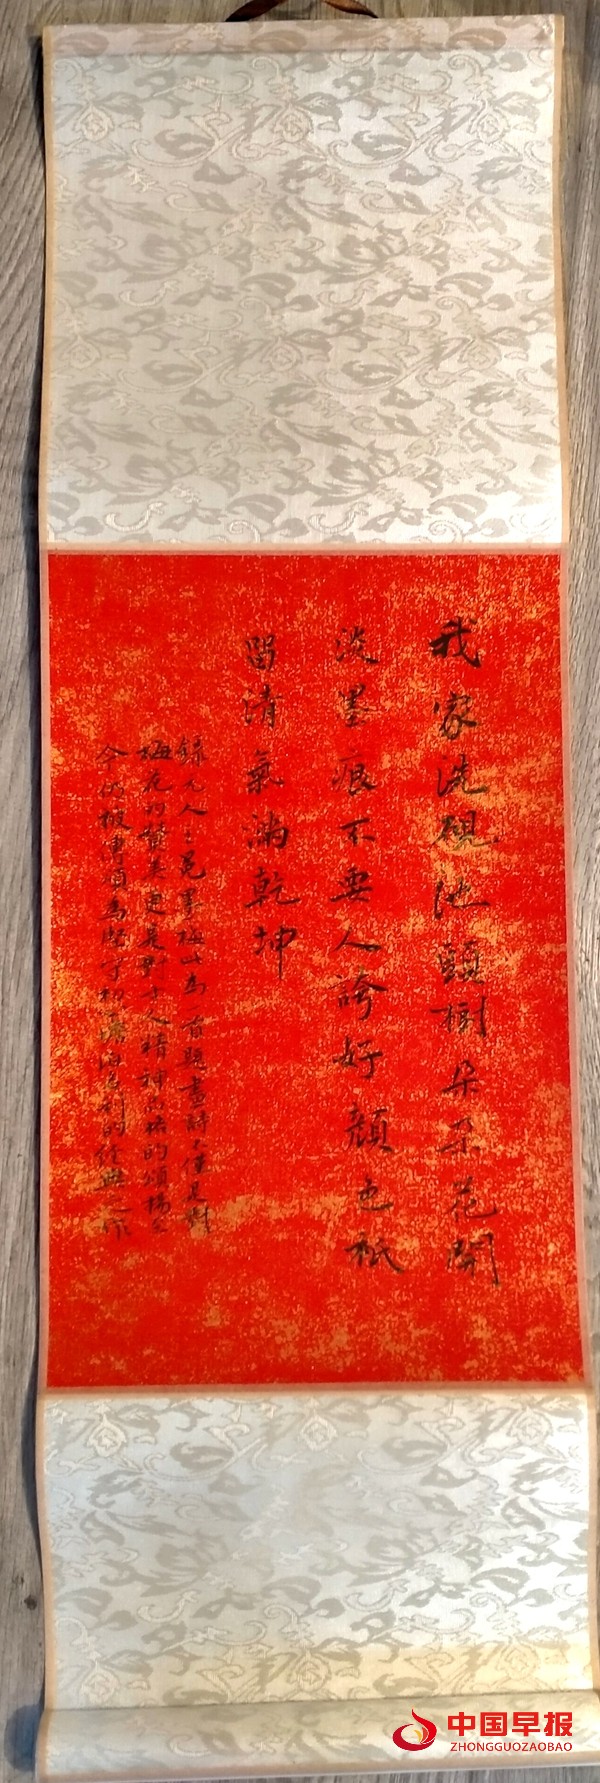 我家洗硯池頭樹朵朵花開
淡墨痕不要人誇好顏色衹
留清氣滿乾坤
錄元人王冕墨梅此為一首題畫詩不僅是對
梅花的贊美更是對士人精神品格的頌揚至
今仍被傳頌為堅守初心淡泊名利的經典之作
中国早报
ZHONGGUOZAOBAO